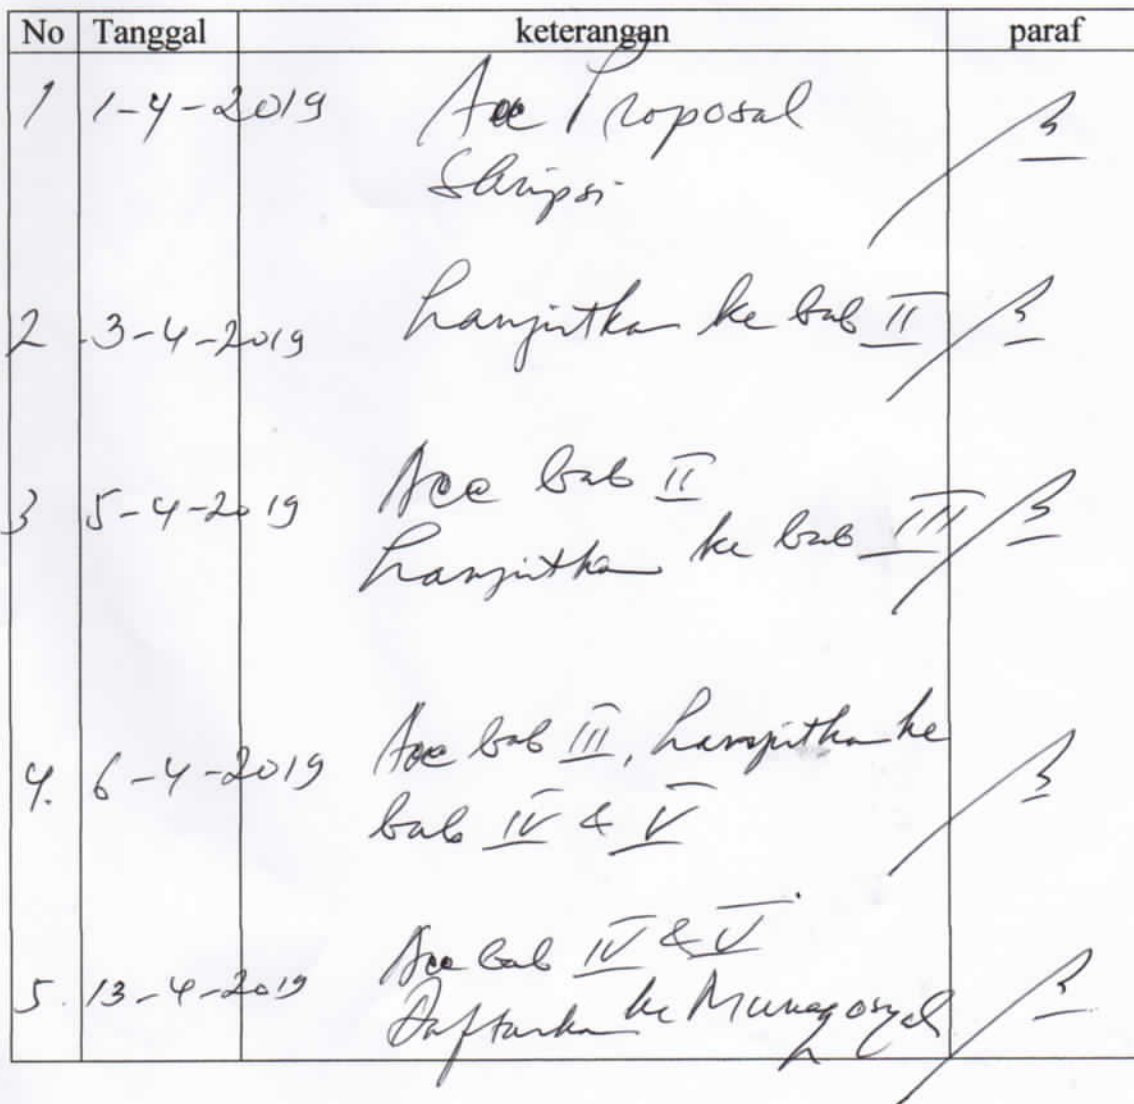 No Tanggal keterangan paraf
1 1-4-2019 Acc Proposal
Skripsi
2 3-4-2019 Lanjutkan ke bab II
3 5-4-2019 Acc bab II
Lanjutkan ke bab III
4. 6-4-2019 Acc bab III, Lanjutkan ke
bab IV & V
5. 13-4-2019 Acc bab IV & V
Daftarkan ke Munaqosyah